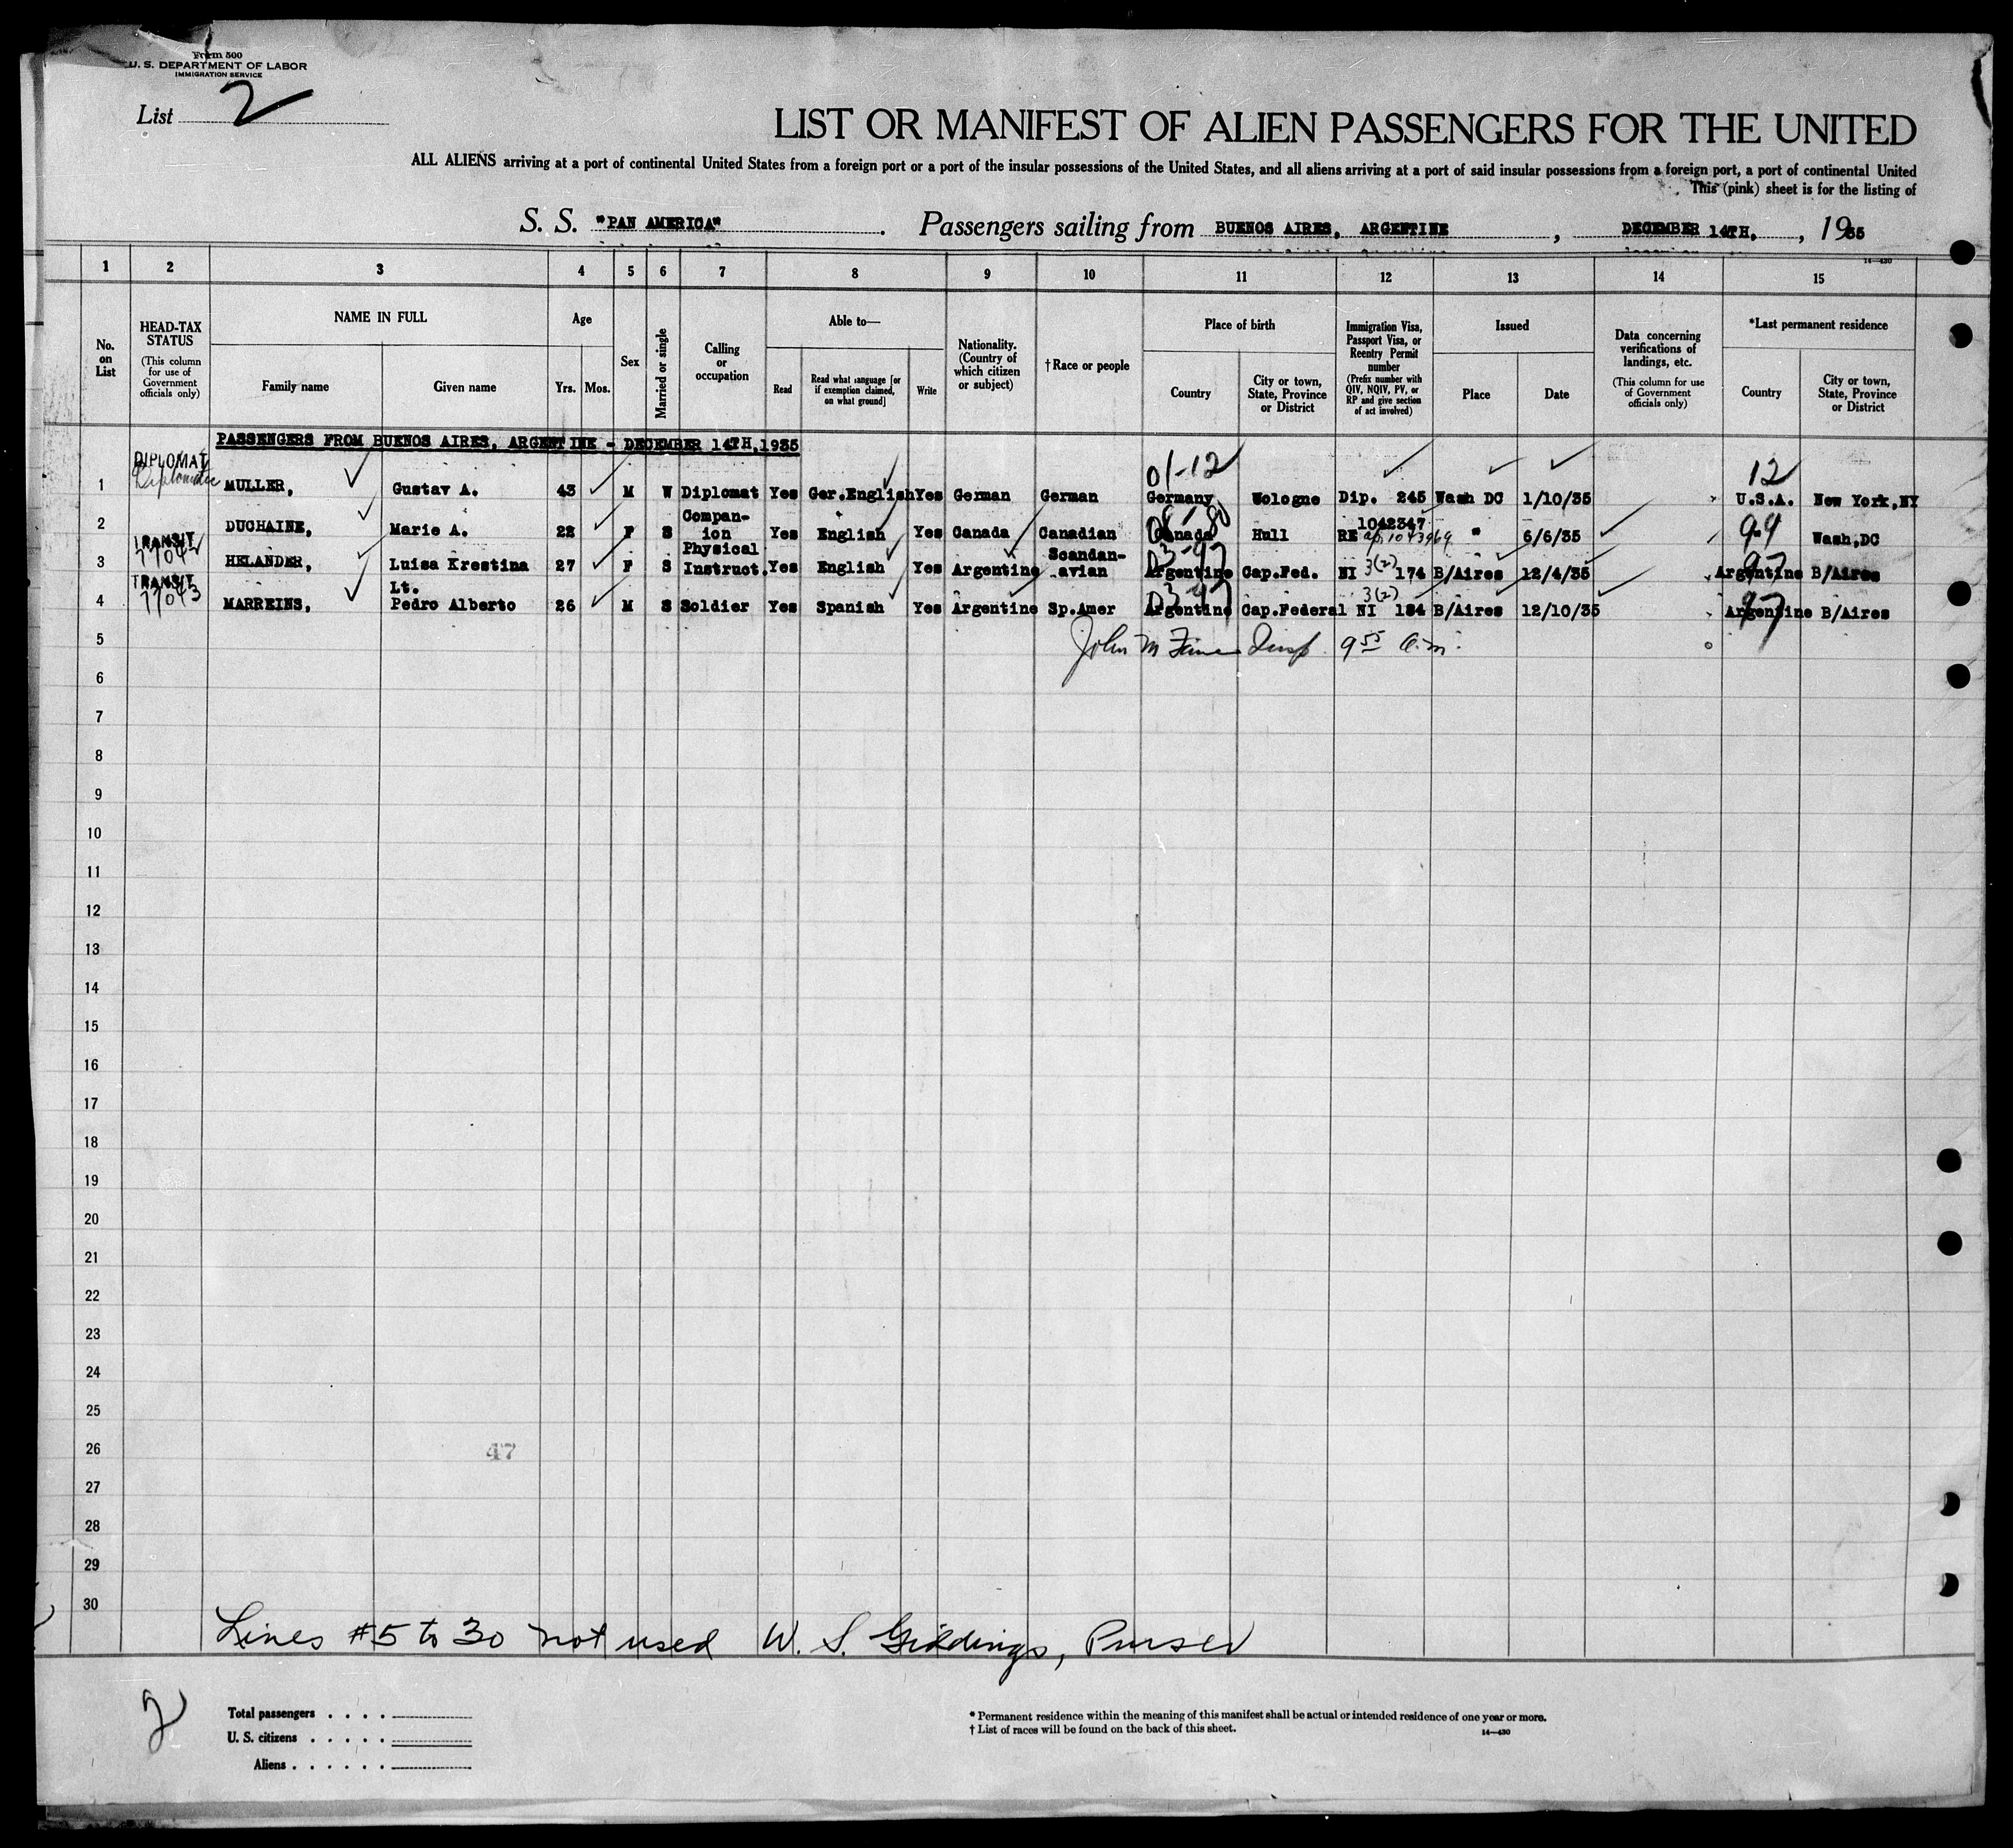 Form 500
U. S. DEPARTMENT OF LABOR
IMMIGRATION SERVICE
List 2
LIST OR MANIFEST OF ALIEN PASSENGERS FOR THE UNITED
ALL ALIENS arriving at a port of continental United States from a foreign port or a port of the insular possessions of the United States, and all aliens arriving at a port of said insular possessions from a foreign port, a port of continental United
This (pink) sheet is for the listing of
S. S. "PAN AMERICA" Passengers sailing from BUENOS AIRES, ARGENTINE, DECEMBER 14TH, 1935
14-430
1 2 3 4 5 6 7 8 9 10 11 12 13 14 15
No. on List
HEAD-TAX STATUS (This column for use of Government officials only)
NAME IN FULL
Family name Given name
Age
Yrs. Mos.
Sex
Married or single
Calling or occupation
Able to—
Read Read what language [or if exemption claimed, on what ground] Write
Nationality. (Country of which citizen or subject)
†Race or people
Place of birth
Country City or town, State, Province or District
Immigration Visa, Passport Visa, or Reentry Permit number (Prefix number with QIV, NQIV, PV, or RP and give section of act involved)
Issued
Place Date
Data concerning verifications of landings, etc. (This column for use of Government officials only)
*Last permanent residence
Country City or town, State, Province or District
PASSENGERS FROM BUENOS AIRES, ARGENTINE - DECEMBER 14TH,1935
DIPLOMAT 01-12 12
1 Diplomatic MULLER, Gustav A. 43 M W Diplomat Yes Ger.English Yes German German Germany Wologne Dip. 245 Wash DC 1/10/35 U.S.A. New York,NY
2 DUCHAINE, Marie A. 22 F S Compan-ion Yes English Yes Canada Canadian Canada Hull RE 1042347 " 6/6/35 99 Wash,DC
TRANSIT 77042
3 HELANDER, Luisa Krestina 27 F S Physical Instruct. Yes English Yes Argentine Scandan-avian Argentine 03-97 Cap.Fed. NI 3(2) 174 B/Aires 12/4/35 Argentine 97 B/Aires
TRANSIT 77043
4 MARREINS, Lt. Pedro Alberto 26 M S Soldier Yes Spanish Yes Argentine Sp.Amer Argentine 03-97 Cap.Federal NI 3(2) 184 B/Aires 12/10/35 Argentine 97 B/Aires
5 John M Insp. 9 55 a.m.
6
7
8
9
10
11
12
13
14
15
16
17
18
19
20
21
22
23
24
25
26 47
27
28
29
30
Lines #5 to 30 not used W. S. Giddings, Purser
2
Total passengers . . . .
U. S. citizens . . . . .
Aliens . . . . . .
* Permanent residence within the meaning of this manifest shall be actual or intended residence of one year or more.
† List of races will be found on the back of this sheet. 14-430